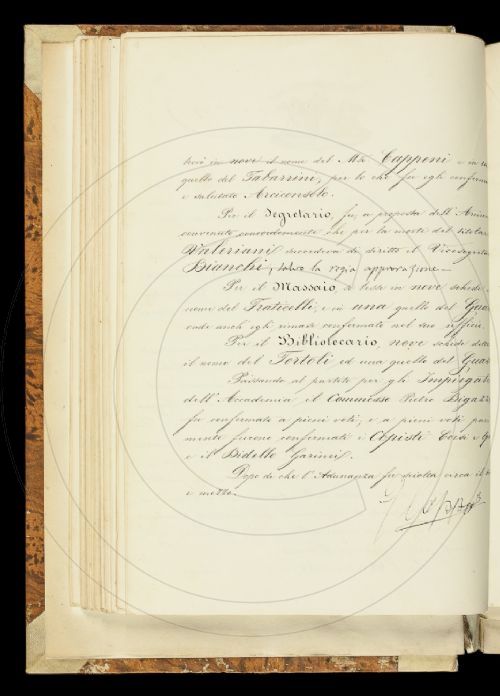 in nove il nome del Capponi e in
quello del Tabarrini, per lo che fu egli
e salutato Arciconsolo.
Per il Segretario, fu, a proposta dell'
convenuto concordemente che per la morte del
Valeriani succedeva di diritto il
Bianchi, salvo la regia approvazione.
Per il Massaio, si lesse in nove schede
nome del Fraticelli, e in una quello del
onde anch'egli rimase confermato nel suo uficio.
Per il Bibliotecario, nove schede
il nome del Tortoli ed una quello del
Passando al partito per gli
dell'Accademia il Commesso Pietro
fu confermato a pieni voti; e a pieni voti
mente furono confermati i Copisti
e il Bidello Garinei.
Dopo di che l'Adunanza fu sciolta circa
e mezzo.